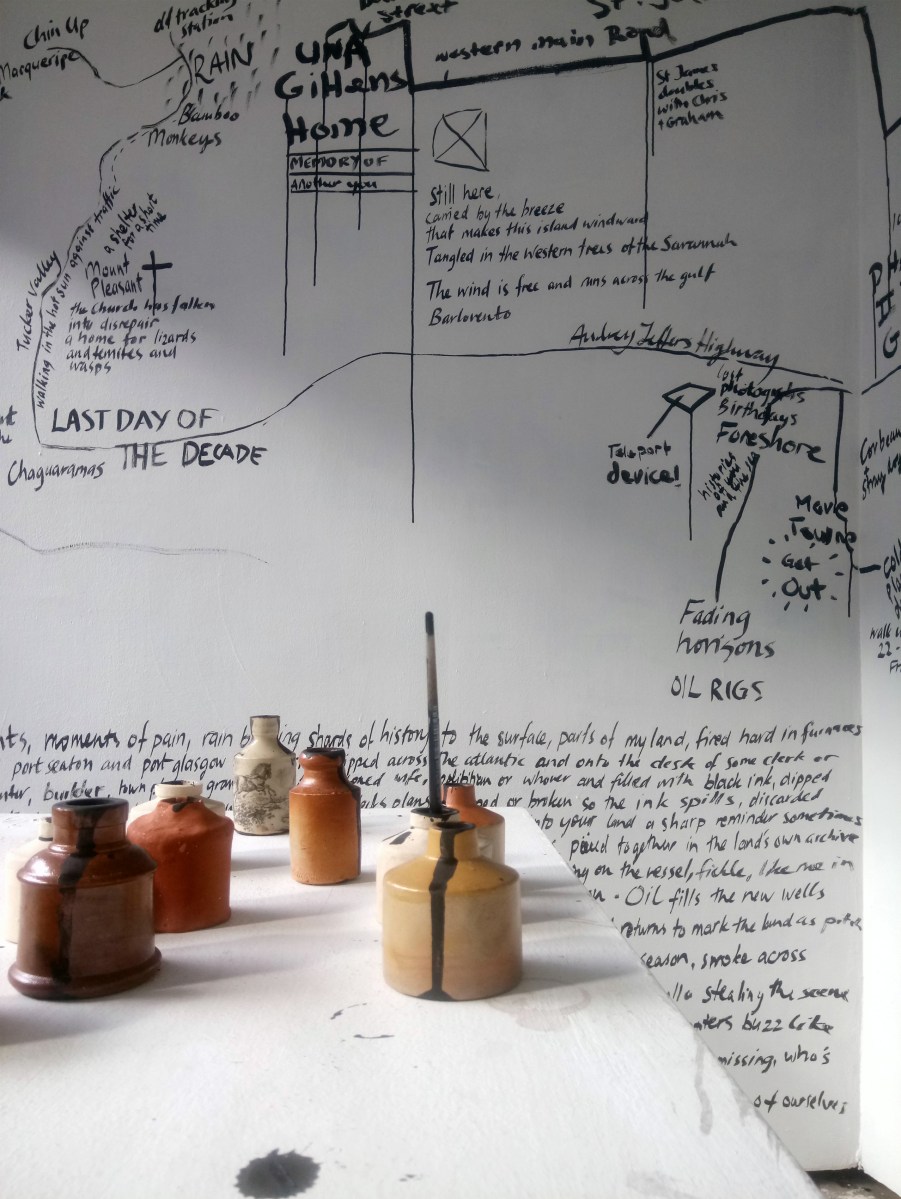 Chin Up
Macqueripe
old tracking
station
RAIN
Bamboo
Monkeys
Street
UNA
Gittens
Home
MEMORY OF
Another you
Western Main Road
St James
doubles
with Chris
+ Graham
Still here,
carried by the breeze
that makes this island windward
Tangled in the Western trees of the Savannah
The wind is free and runs across the gulf
Barlovento
Tucker Valley
walking in the hot sun against traffic
a shelter
for a short
time
Mount
Pleasant
the Church has fallen
into disrepair
a home for lizards
and termites and
wasps
LAST DAY OF
THE DECADE
Chaguaramas
Audrey Jeffers Highway
lost
photographs
Birthdays
Foreshore
Teleport
device!
histories
of you
and
Move
Town
Get
Out
PHG
Fading
horisons
OIL RIGS
stray
walk
22 -
moments of pain, rain shards of history to the surface, parts of my land, fired hard in furnaces
port seaton and port glasgow across the atlantic and onto the desk of some clerk or
builder, town wife, or whoever and filled with black ink, dipped
or broken so the ink spills, discarded
into your land a sharp reminder sometimes
pieced together in the land's own archive
on the vessel, fickle, like me in
Oil fills the new wells
returns to mark the land as
season, smoke across
stealing the scene
buzz like
missing, who's
of ourselves